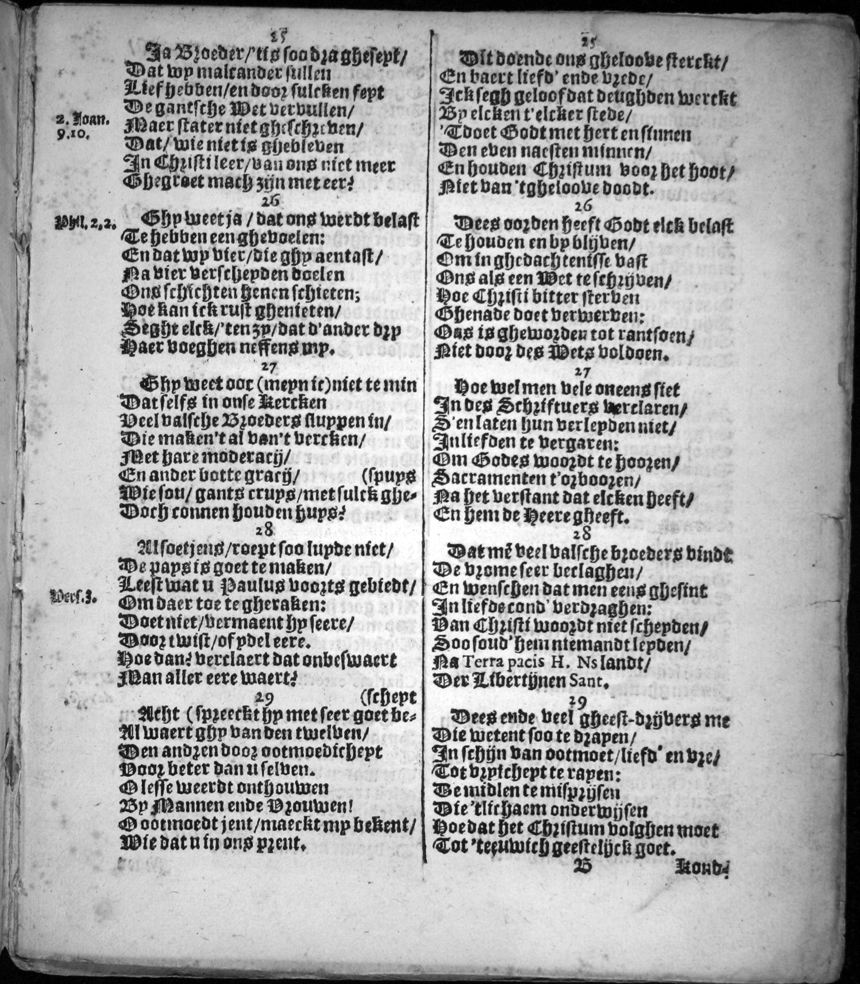 25
Ja Broeder/'tis soo dra gheseyt/
Dat wy malcander sullen
Lief hebben/en door sulcken feyt
De gantsche Wet vervullen/
2. Joan.
9.10.
Maer stater niet gheschreven/
Dat/wie niet is ghebleven
In Christi leer/van ons niet meer
Ghegroet mach zijn met eer?
26
Phil. 2,2.
Ghy weet ja/dat ons werdt belast
Te hebben een ghevoelen:
En dat wy vier/die ghy aentast/
Na vier verscheyden doelen
Ons schichten henen schieten;
Hoe kan ick rust ghenieten/
Seght elck/'ten zy/dat d'ander dry
Haer voeghen neffens my.
27
Ghy weet ooc (meyn ic) niet te min
Dat selfs in onse Kercken
Veel valsche Broeders sluppen in/
Die maken't al van't vercken/
Met hare moderacy/
En ander botte gracy/ (spuys
Wie sou/gants cruys/met sulck ghe-
Doch connen houden huys?
28
Alsoetjens/roept soo luyde niet/
De pays is goet te maken/
Leest wat u Paulus voorts gebiedt/
Vers.3.
Om daer toe te gheraken:
Doet niet/vermaent hy seere/
Door twist/of ydel eere.
Hoe dan? verclaert dat onbeswaert
Man aller eere waert?
29 (scheyt
Acht (spreeckt hy met seer goet be-
Al waert ghy van den twelven/
Den andren door ootmoedicheyt
Voor beter dan u selven.
O lesse weerdt onthouwen
By Mannen ende Vrouwen!
O ootmoedt jent/maeckt my bekent/
Wie dat u in ons prent.
25
Dit doende ons gheloove sterckt/
En baert liefd' ende vrede/
Ick segh geloof dat deughden werckt
By elcken t'elcker stede/
'Tdoet Godt met hert en sinnen
Den even naesten minnen/
En houden Christum voor het hoot/
Niet van 'tgheloove doodt.
26
Dees oorden heeft Godt elck belast
Te houden en by blijven/
Om in ghedachtenisse vast
Ons als een Wet te schrijven/
Hoe Christi bitter sterven
Ghenade doet verwerven:
Ons is gheworden tot rantsoen/
Niet door des Wets voldoen.
27
Hoe wel men vele oneens siet
In des Schriftuers verclaren/
S'en laten hun verleyden niet/
In liefden te vergaren:
Om Godes woordt te hooren/
Sacramenten t'orbooren/
Na het verstant dat elcken heeft/
En hem de Heere gheeft.
28
Dat mẽ veel valsche broeders vindt
De vrome seer beclaghen/
En wenschen dat men eens ghesint
In liefde cond' verdraghen:
Van Christi woordt niet scheyden/
Soo soud' hem niemandt leyden/
Na Terra pacis H. Ns landt/
Der Libertijnen Sant.
29
Dees ende veel gheest-drijvers me
Die wetent soo te drayen/
In schijn van ootmoet/liefd' en vre/
Tot vryicheyt te rayen:
De midlen te misprijsen
Die 'tlichaem onderwijsen
Hoe dat het Christum volghen moet
Tot 'teeuwich geestelijck goet.
B Koud?